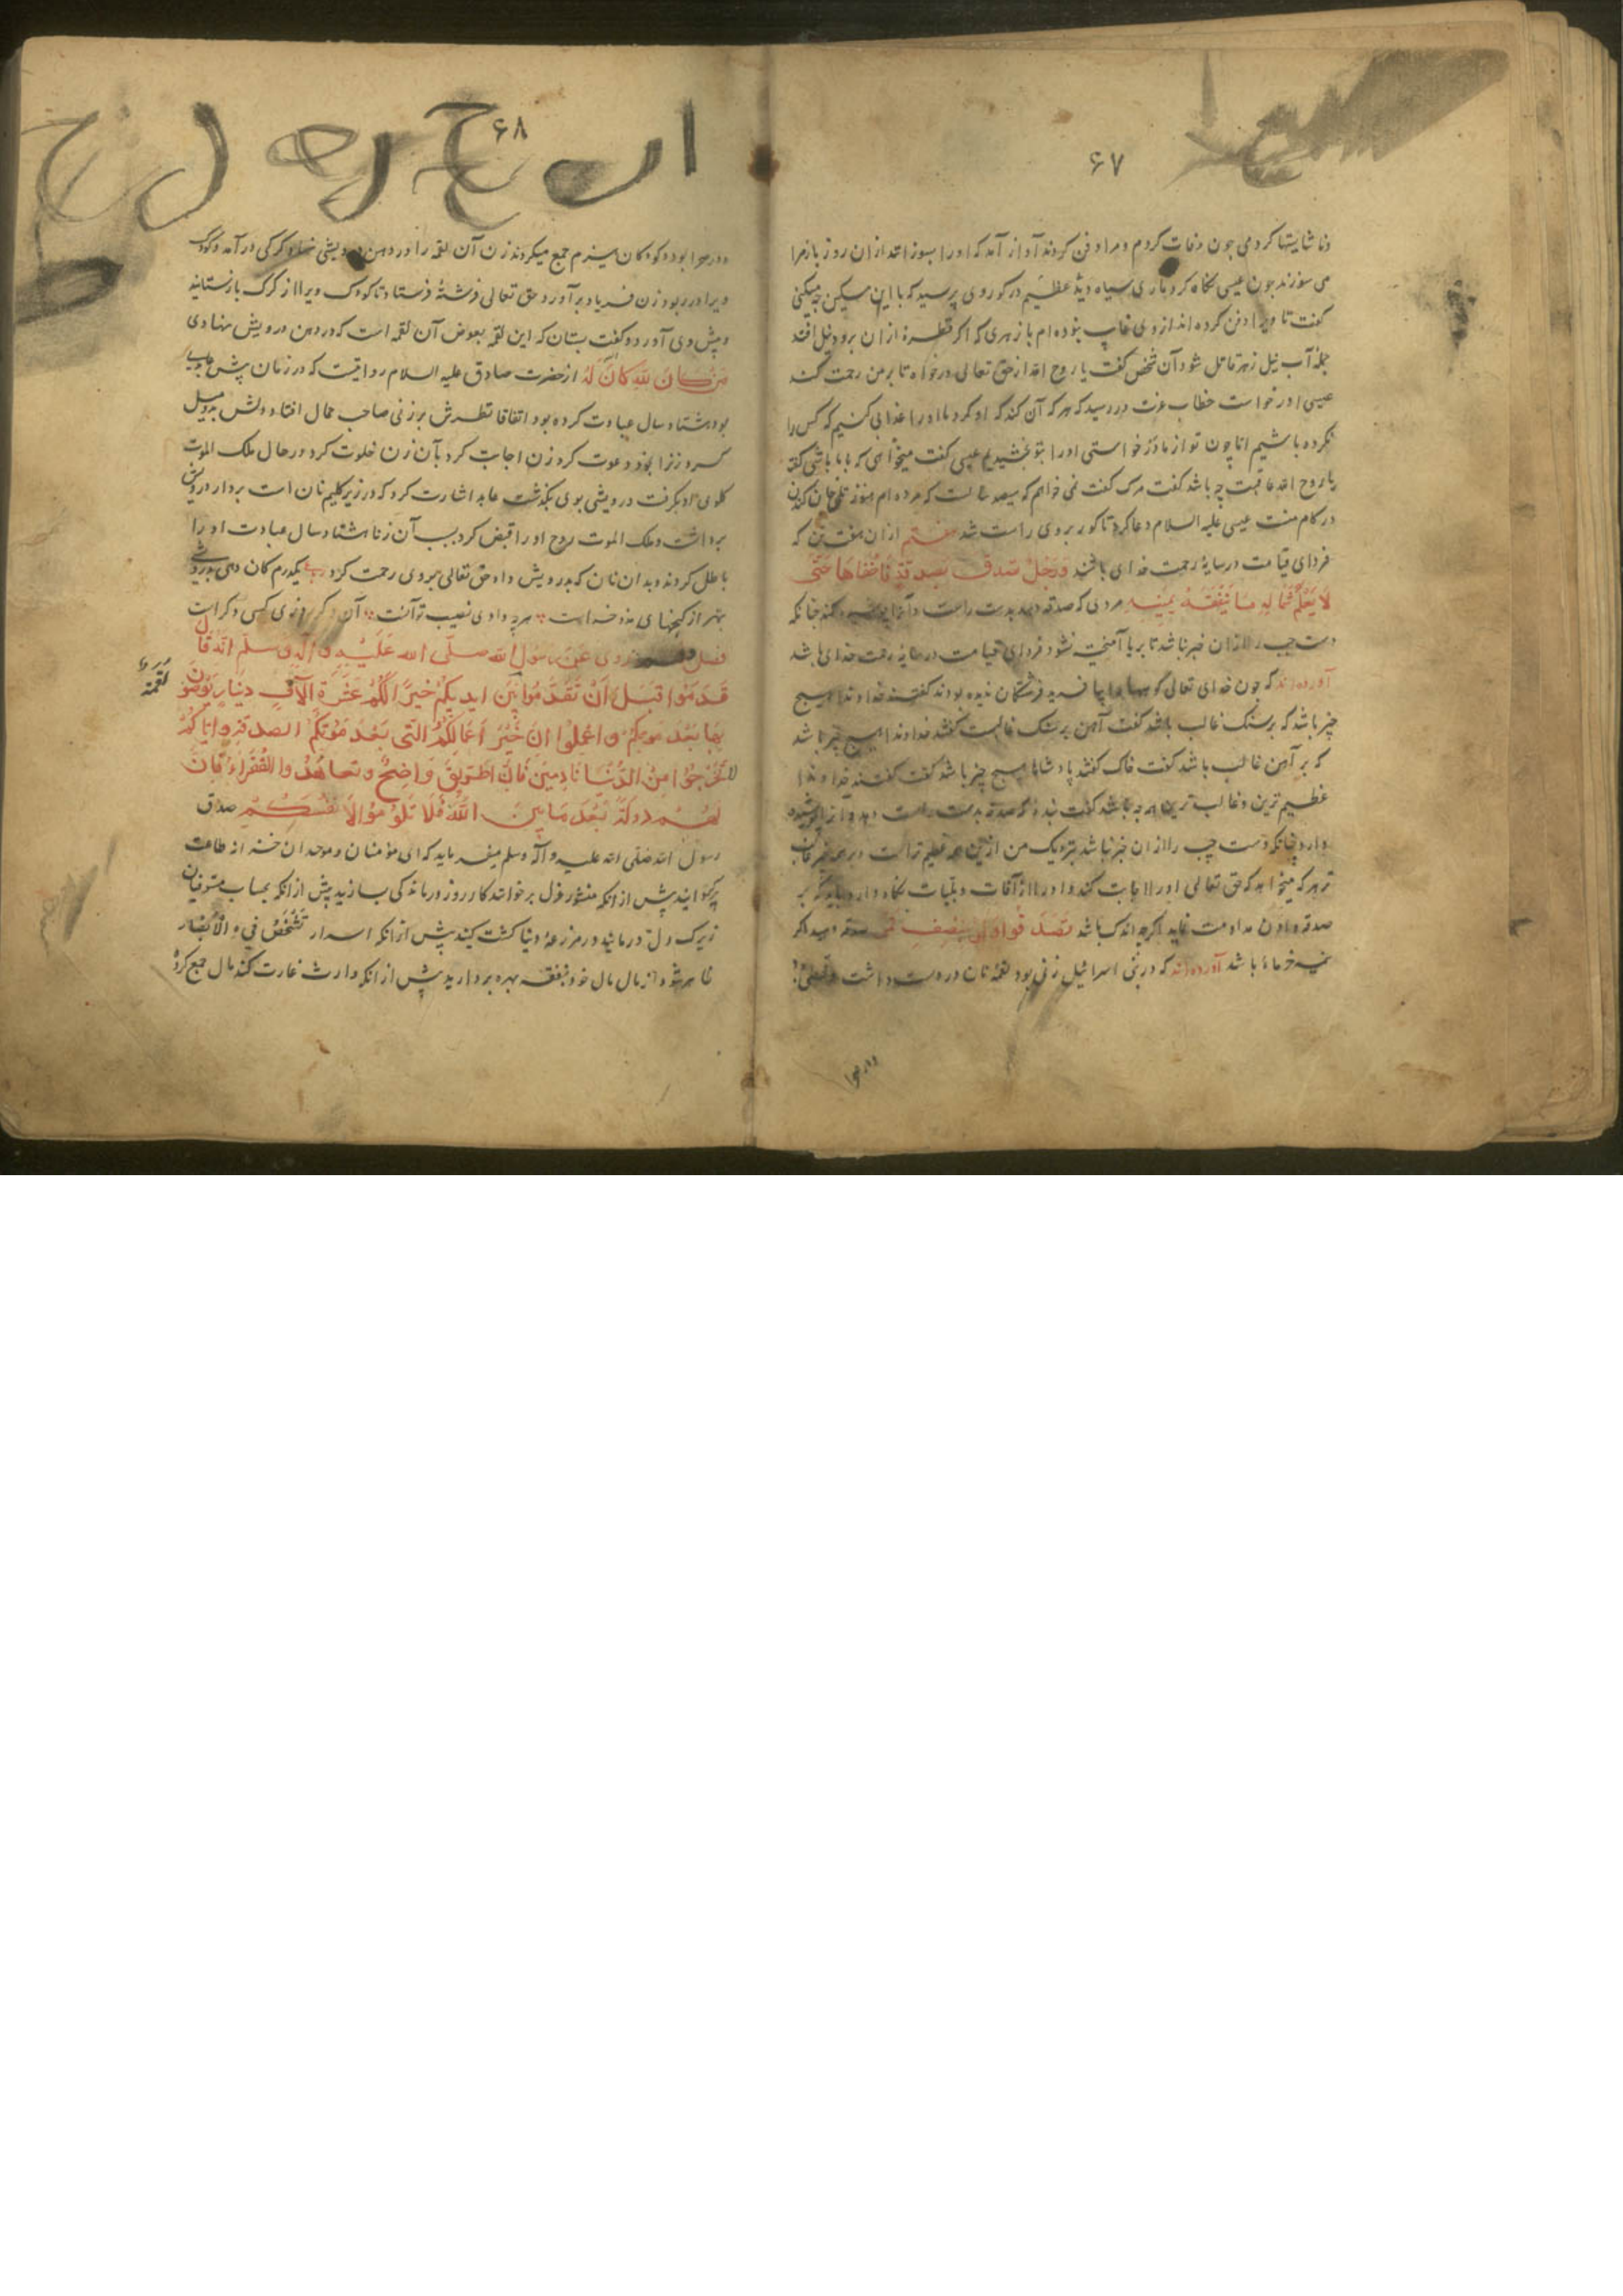 ۶۷
وناشایستها کردمی چون وفات کردم و مرا دفن کردند آواز آمد که اورا بسوزانید ازان روز باز مرا
می سوزند چون عیسی نگاه کرد ماری سیاه دید عظیم در کور وی پرسید که با این مسکین چه میکنی
کفت تا ویرا دفن کرده اند از وی غایب نبوده ام با زهری که اکر قطرهٔ ازان برود نیل افتد
جمله آب نیل زهر قاتل شود آن شخص کفت یا روح الله از حق تعالی درخواه تا بر من رحمت کند
عیسی درخواست خطاب عزت در رسید که هر که آن کند که او کرد ما اورا عذابی کنیم که کس را
نکرده باشیم اما چون تو از ما درخواستی اورا بتو بخشیدیم عیسی کفت میخواهی که با ما باشی کفت
یا روح الله عاقبت چه باشد کفت مرک کفت نمی خواهم که سیصد سالست که مرده ام هنوز تلخی جان کندن
در کام منست عیسی علیه السلام دعا کرد تا کور بر وی راست شد هفتم ازان هفت تن که
فردای قیامت در سایهٔ رحمت خدای باشند وَرَجُلٌ تصدق بصدقة فاخفاها حتی
لا یعلم شماله ما ینفقه یمینه مردی که صدقه دهد بدست راست و آنرا پوشیده کند چنانکه
دست چپ را ازان خبر نباشد تا بریا آمیخته نشود فردای قیامت در سایهٔ رحمت خدای باشد
آورده اند که چون خدای تعالی کوهها را بیافرید فرشتکان ندیده بودند کفتند خداوندا هیچ
چیز باشد که بر سنک غالب باشد کفت آهن بر سنک غالبست کفتند خداوندا هیچ چیز باشد
که بر آهن غالب باشد کفت خاک کفتند پادشاها هیچ چیز باشد کفت کفتند خداوندا
عظیم ترین و غالب ترین همه چه باشد کفت بنده که صدقه بدست راست دهد و آنرا پوشیده
دارد چنانکه دست چپ را ازان خبر نباشد بنزدیک من ازین همه عظیم تر است و بر همه چیز غالب
تر هر که میخواهد که حق تعالی اورا اجابت کند و اورا از آفات و بلیات نکاه دارد باید که بر
صدقه دادن مداومت نماید اکرچه اندک باشد تصدقوا ولو بنصف تمر صدقه دهید اکر
نیمه خرمای باشد آورده اند که در بنی اسرائیل زنی بود لقمهٔ نان در دست داشت و طفلی
در صحرا
۶۸
در صحرا بود و کودکان هیزم جمع میکردند زن آن لقمه را در دهن درویشی نهاد کرکی در آمد و کودک
ویرا در ربود زن فریاد بر آورد حق تعالی فرشتهٔ فرستاد تا کودک ویرا از کرک باز ستانید
و پیش وی آورد و کفت بستان که این لقمه بعوض آن لقمه است که در دهن درویش نهادی
مَن کانَ لله کانَ لَه از حضرت صادق علیه السلام روایتست که در زمان پیش عابدی
بود هشتاد سال عبادت کرده بود اتفاقا نظرش بر زنی صاحب جمال افتاد دلش بدو میل
کرد زنرا بخود دعوت کرد زن اجابت کرد با آن زن خلوت کرد در حال ملک الموت
کلوی او بکرفت درویشی بوی بکذشت عابد اشارت کرد که در زیر کلیم نان است بردار درویش
برداشت و ملک الموت روح او را قبض کرد بسبب آن زنا هشتاد سال عبادت او را
باطل کردند و بدان نان که بدرویش داد حق تعالی بر وی رحمت کرد یکدرم کان دهی بدرویشی
بهتر از کنجهای مدخر است هر چه دادی نصیب تو آنست آن دکر روزی کسی دکر است
فصل روی عن رسول الله صلی الله علیه و آله و سلم انه قال
قدموا قبل ان تقدموا بین ایدیکم خیر الکم عشرة الآف دینار یوصون
بها بعد موتکم واعملوا ان خیر اعمالکم التی بعد موتکم الصدقة وایاکم
لا تخرجوا من الدنیا نادمین فان الطریق واضح و تعاهدوا للفقراء فان
لهم دولة بعد ما بین الله فلا تلوموا الا انفسکم صدق
رسول الله صلی الله علیه و آله وسلم میفرماید که ای مؤمنان و موحدان خسته از طاعت
پیش ازانکه منشور عزل بر خوانند کار روز درماندکی بسازید پیش ازانکه بحساب مستوفیان
زیرک دل درمانید در مزرعهٔ دنیا کشت کنید پیش ازانکه اسرار تشخص فیه الابصار
ظاهر شود از مال مال خود بنفقه بهره بردارید پیش ازانکه وارث غارت کند مال جمع کرده
لقمة